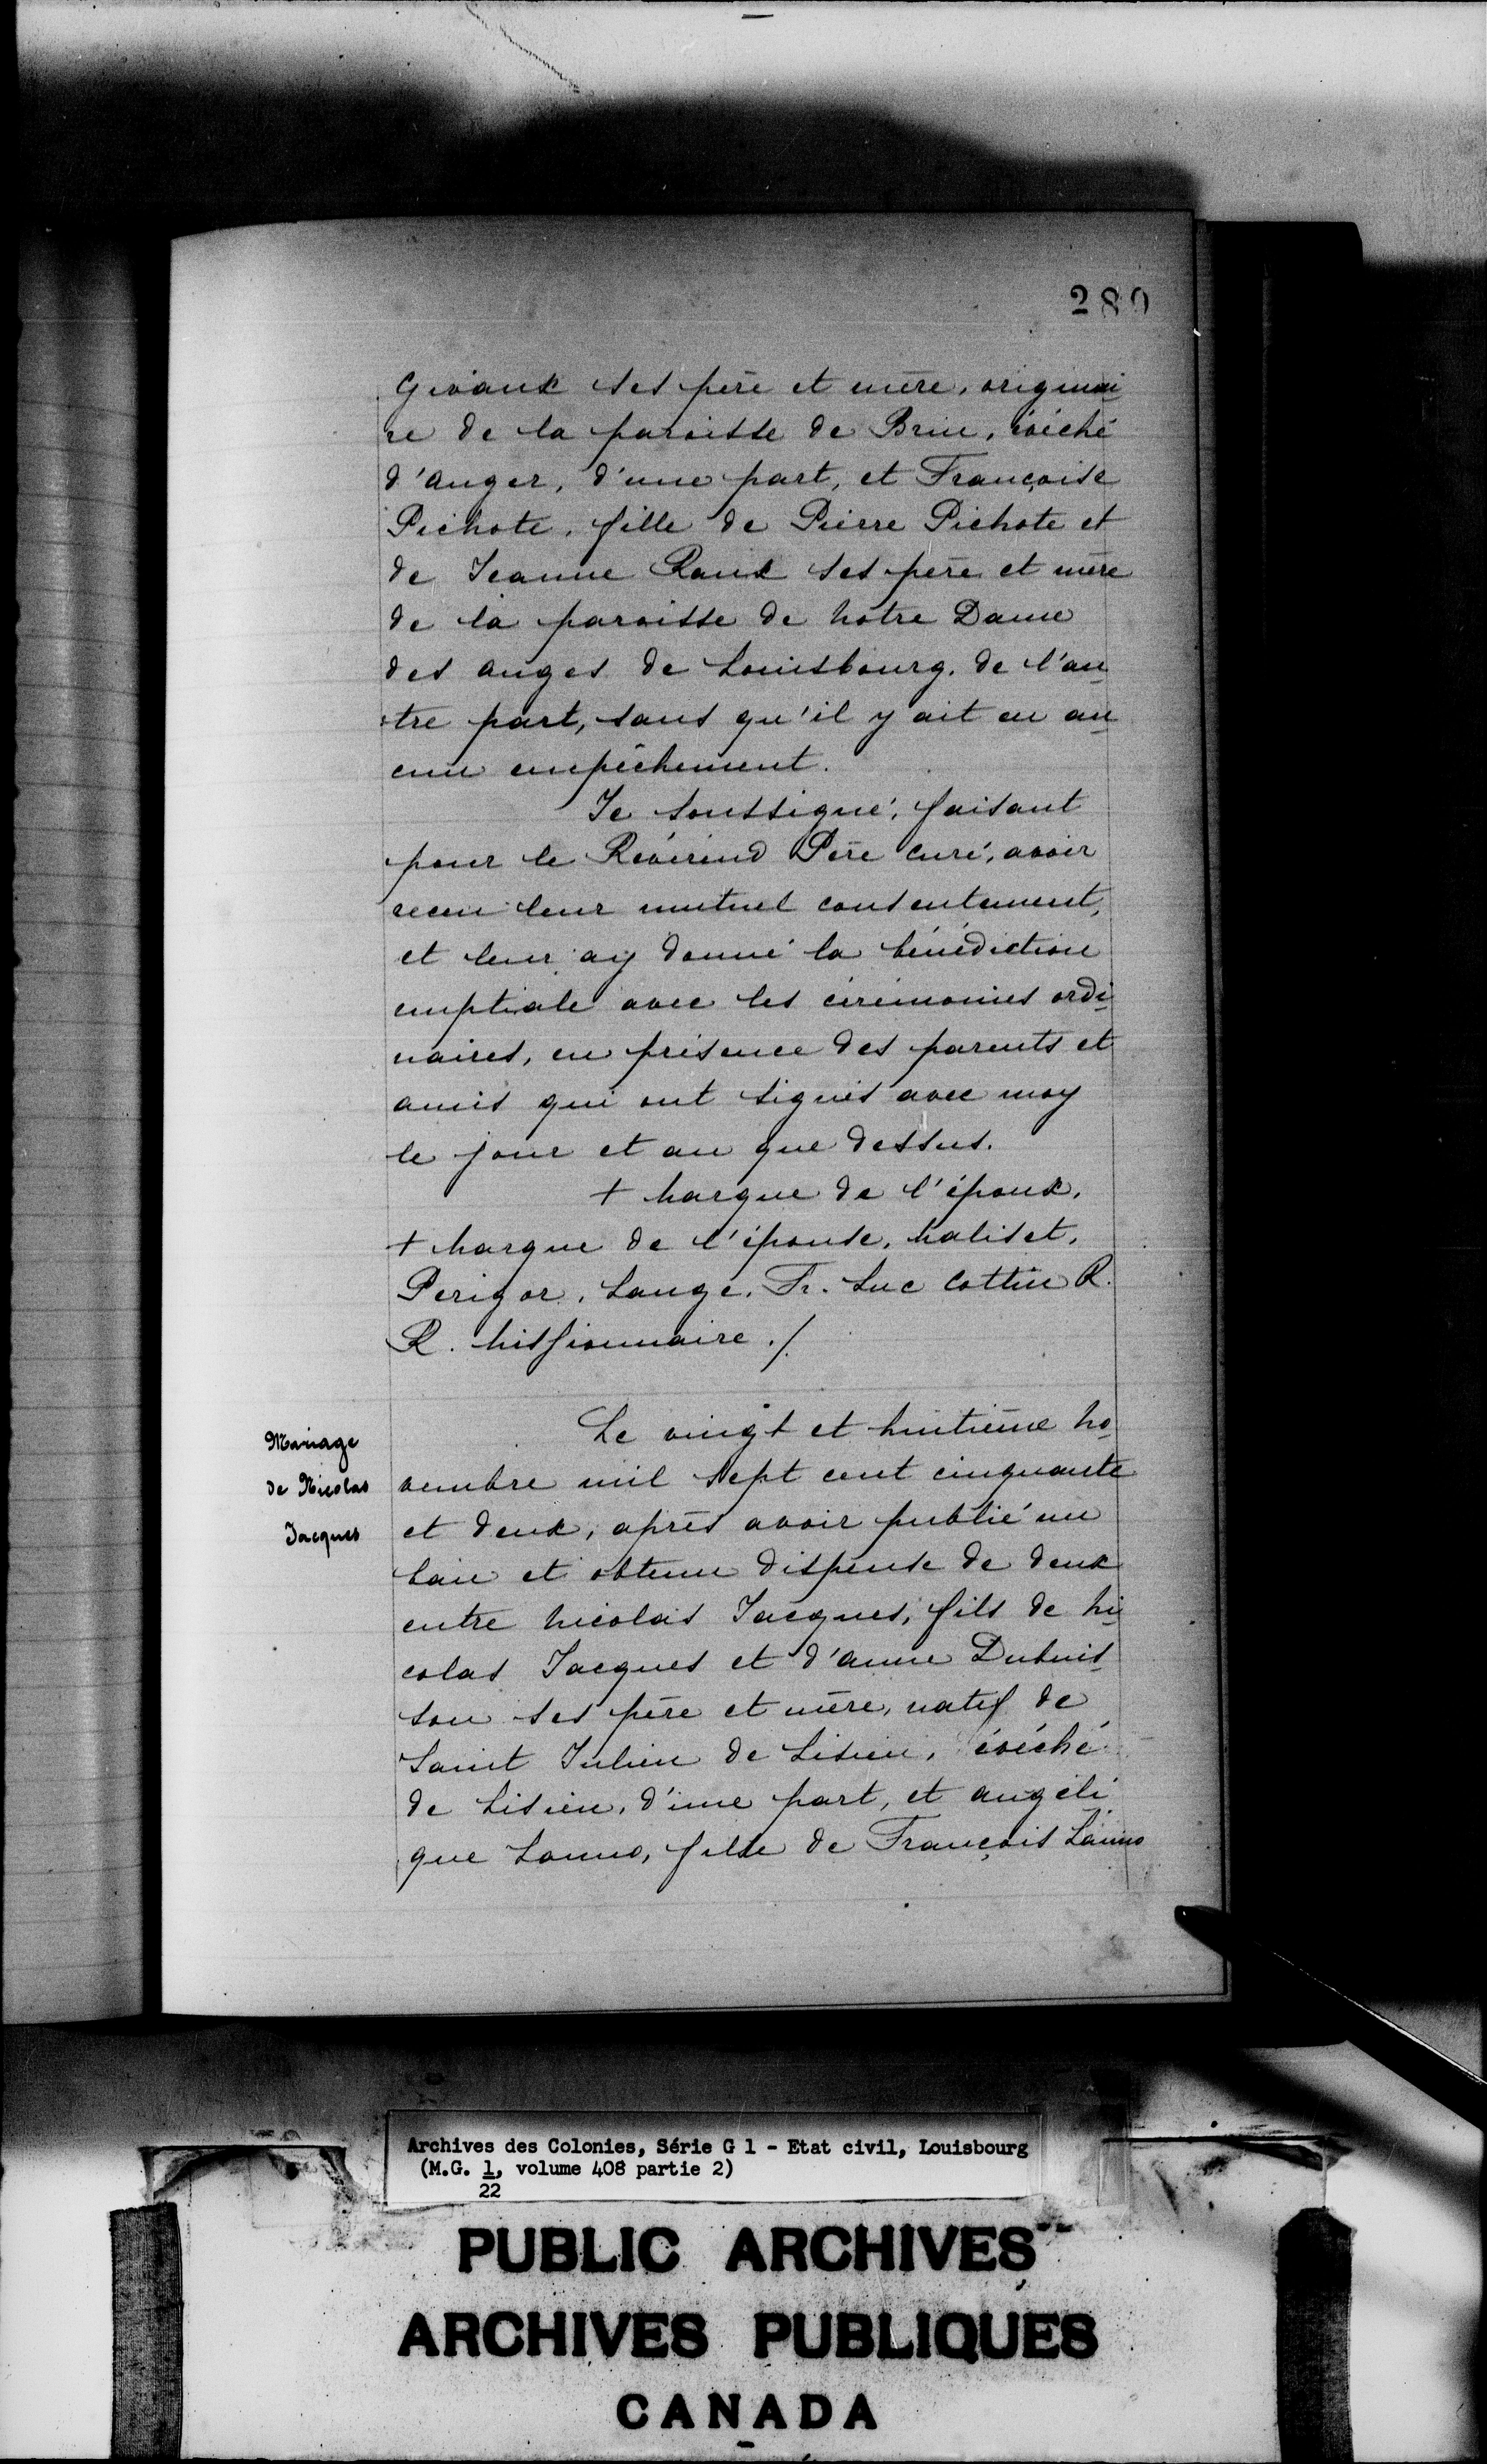 280
Givaux ses père et mère, originai
re de la paroisse de Brin, évéché
d'anger, d'une part, et Françoise
Pichote, fille de Pierre Pichote et
de Jeanne Roux ses père et mère
de la paroisse de notre Dame
des anges de Louisbourg, de l'au
tre part, sans qu'il y ait eu au
cun empêchement.
Je soussigné, faisant
pour le Révérend Père curé, avoir
receu leur mutuel consentement,
et leur ay donné la bénédiction
nuptiale avec les cérémonies ordi
naires, en présence des parents et
amis qui ont signés avec moy
le jour et an que dessus.
+ marque de l'époux.
+ marque de l'épouse. maliset.
Perigor. Lange. Fr. Luc Cottin R.
R. missionnaire ./.
Mariage
de Nicolas
Jacques
Le vingt et huitième no
vembre mil sept cent cinquante
et deux, après avoir publié un
ban et obtenu dispense de deux
entre nicolas Jacques, fils de ni
colas Jacques et d'anne Dubuis
son ses père et mère, natif de
Saint Julien de Lisieu, évéché
de Lisieu, d'une part, et angéli
que Lanno, fille de François Lanno
Archives des Colonies, Série G 1 - Etat civil, Louisbourg
(M.G. 1, volume 408 partie 2)
22
PUBLIC ARCHIVES
ARCHIVES PUBLIQUES
CANADA